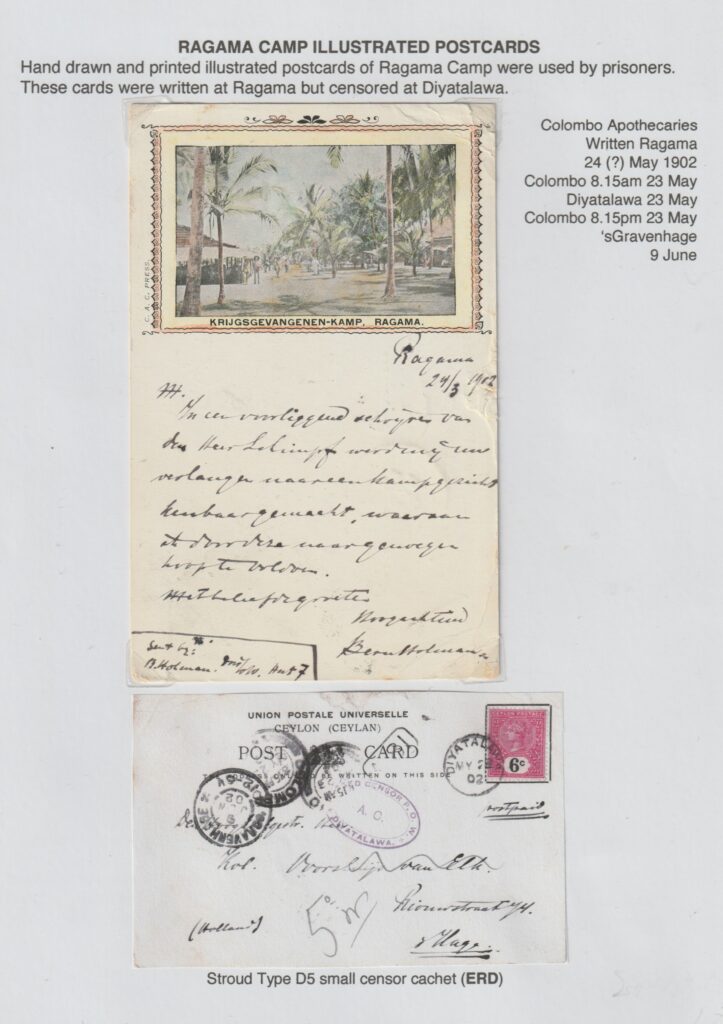 RAGAMA CAMP ILLUSTRATED POSTCARDS
Hand drawn and printed illustrated postcards of Ragama Camp were used by prisoners.
These cards were written at Ragama but censored at Diyatalawa.
Colombo Apothecaries
Written Ragama
24 (?) May 1902
Colombo 8.15am 23 May
Diyatalawa 23 May
Colombo 8.15pm 23 May
'sGravenhage
9 June
C. A. C. PRESS.
KRIJGSGEVANGENEN-KAMP, RAGAMA.
Ragama
24/5 1902
M.
In een voorliggend schrijven van
den Heer Schimpf werd mij uw
verlangen naar een kampgezicht
kenbaar gemacht, waaraan
ik door deze naar genoegen
hoop te voldoen.
Met beleefde groeten
Hoogachtend
Bern Holman
Sent by:
B. Holman. Hut 7
UNION POSTALE UNIVERSELLE
CEYLON (CEYLAN)
POST CARD
TO BE WRITTEN ON THIS SIDE
CEYLON POSTAGE
6c
DIYATALAWA
MY 23
02
postpaid
CENSOR P.O.W.
A. C.
DIYATALAWA.
GRAVENHAGE
Kol. van Eck.
Riouwstraat
(Holland)
s'Hage.
Stroud Type D5 small censor cachet (ERD)